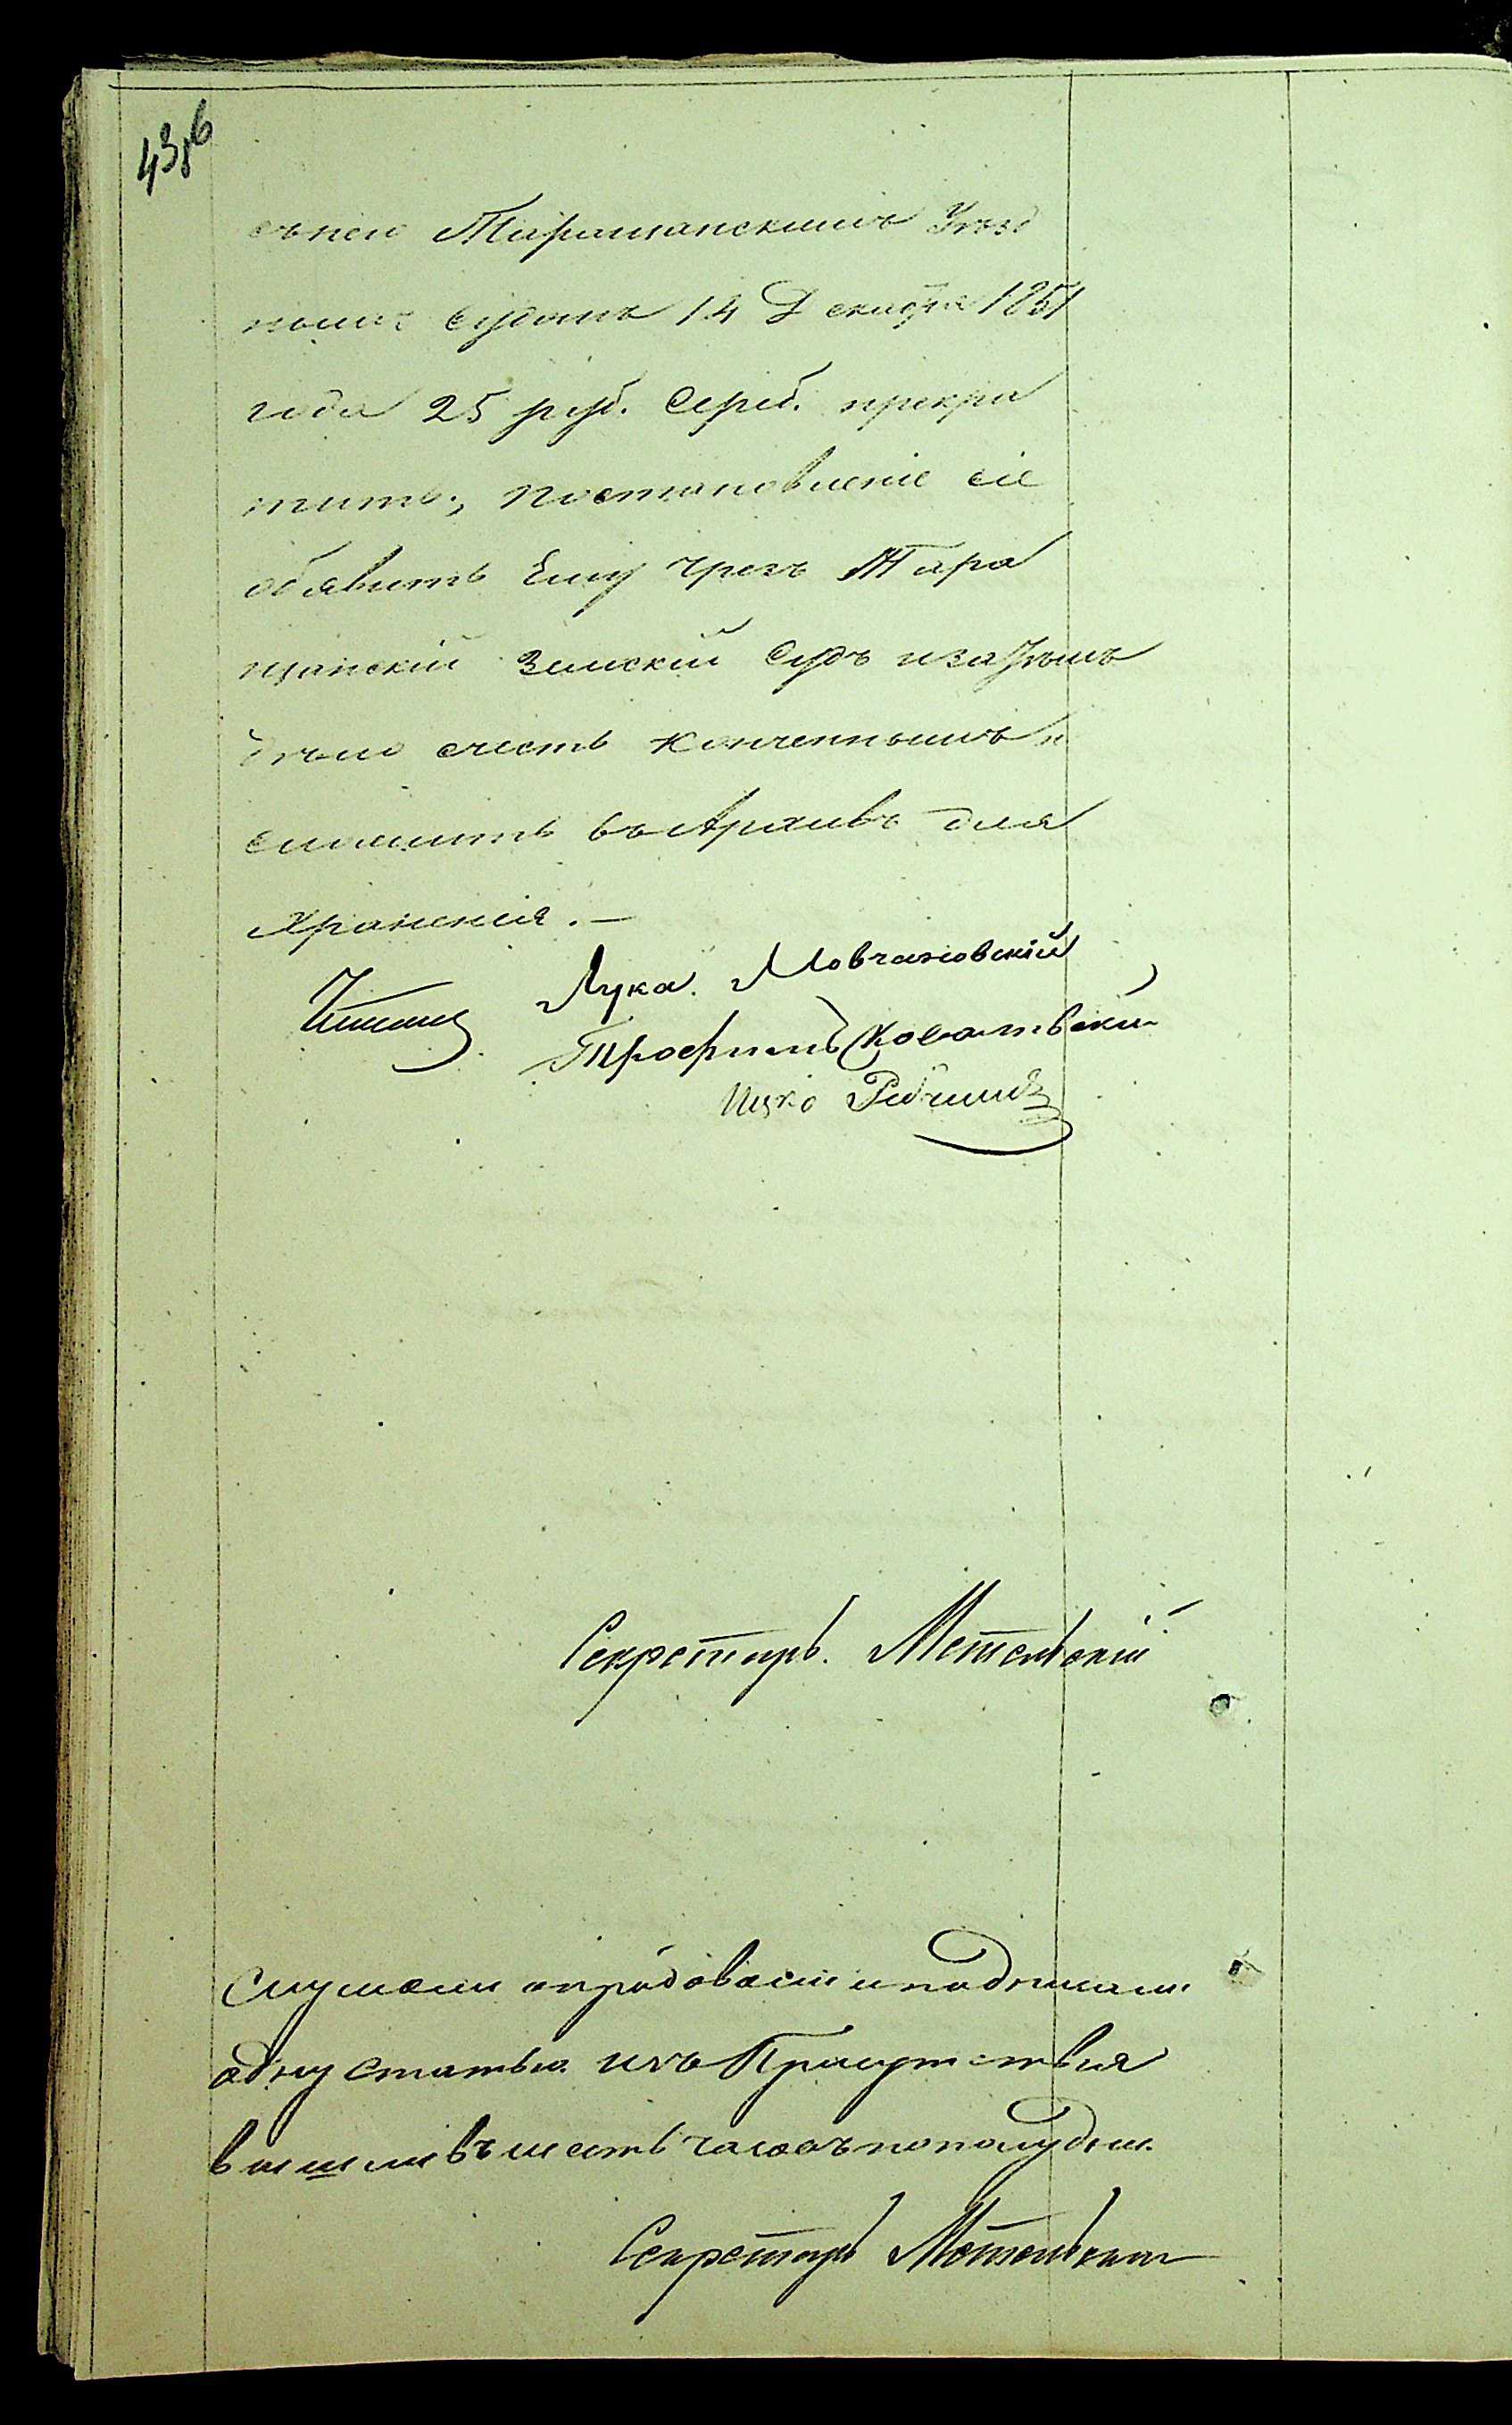 438б
съ него Таращанскимъ Уѣзд
нымъ Судомъ 14 Декабря 1851
года 25 руб. Сереб. прекра
тить; постановленіе сіе
объявить Ему чрезъ Тара
щанскій Земскій Судъ и затѣмъ
дѣло счесть конченнымъ и
сложить въ Архивъ для
Храненія. —
Лука Мовчановскій
Трофимъ Ковальвскій
Ицко
Секретарь. Метельскій
Слушали апробовали и подписали
одну статью. изъ Присутствія
вышли въ шесть часовъ пополудни.
Секретарь Метельскій